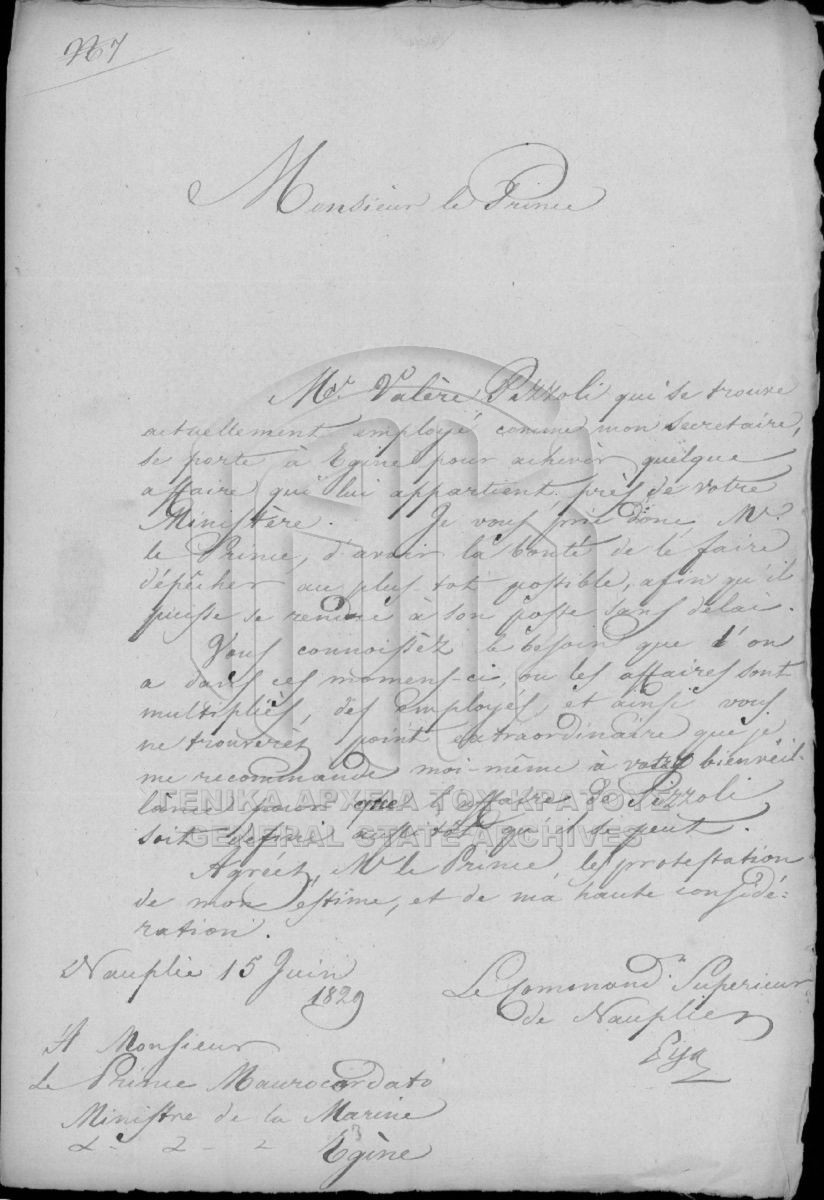 N 7
Monsieur le Prince
Mr. Valère Pizzoli qui se trouve
actuellement employé comme mon secretaire,
se porte à Egine pour achever quelque
affaire qui lui appartient, près de votre
Ministère. Je vous prie donc, Mr.
le Prince, d'avoir la bonté de le faire
dépêcher au plus-tot possible, afin qu'il
puisse se rendre à son poste sans delai.
Vous connoissez le besoin que l'on
a dans ces momens-ci, ou les affaires sont
multipliès, des employés, et ainsi vous
ne trouverès point extraordinaire que je
me recommande moi-même à votre bienveil-
lance pour que l'affaire de Pizzoli
soit aussi-tôt qu'il se peut.
Agréez, Mr. le Prince, les protestation
de mon estime, et de ma haute considé-
ration.
Nauplie 15 Juin
1829
Le Command.n Superieur
de Nauplie
A Monsieur
Le Prince Maurocordato
Ministre de la Marine
Egine
ΓΕΝΙΚΑ ΑΡΧΕΙΑ ΤΟΥ ΚΡΑΤΟΥΣ
GENERAL STATE ARCHIVES